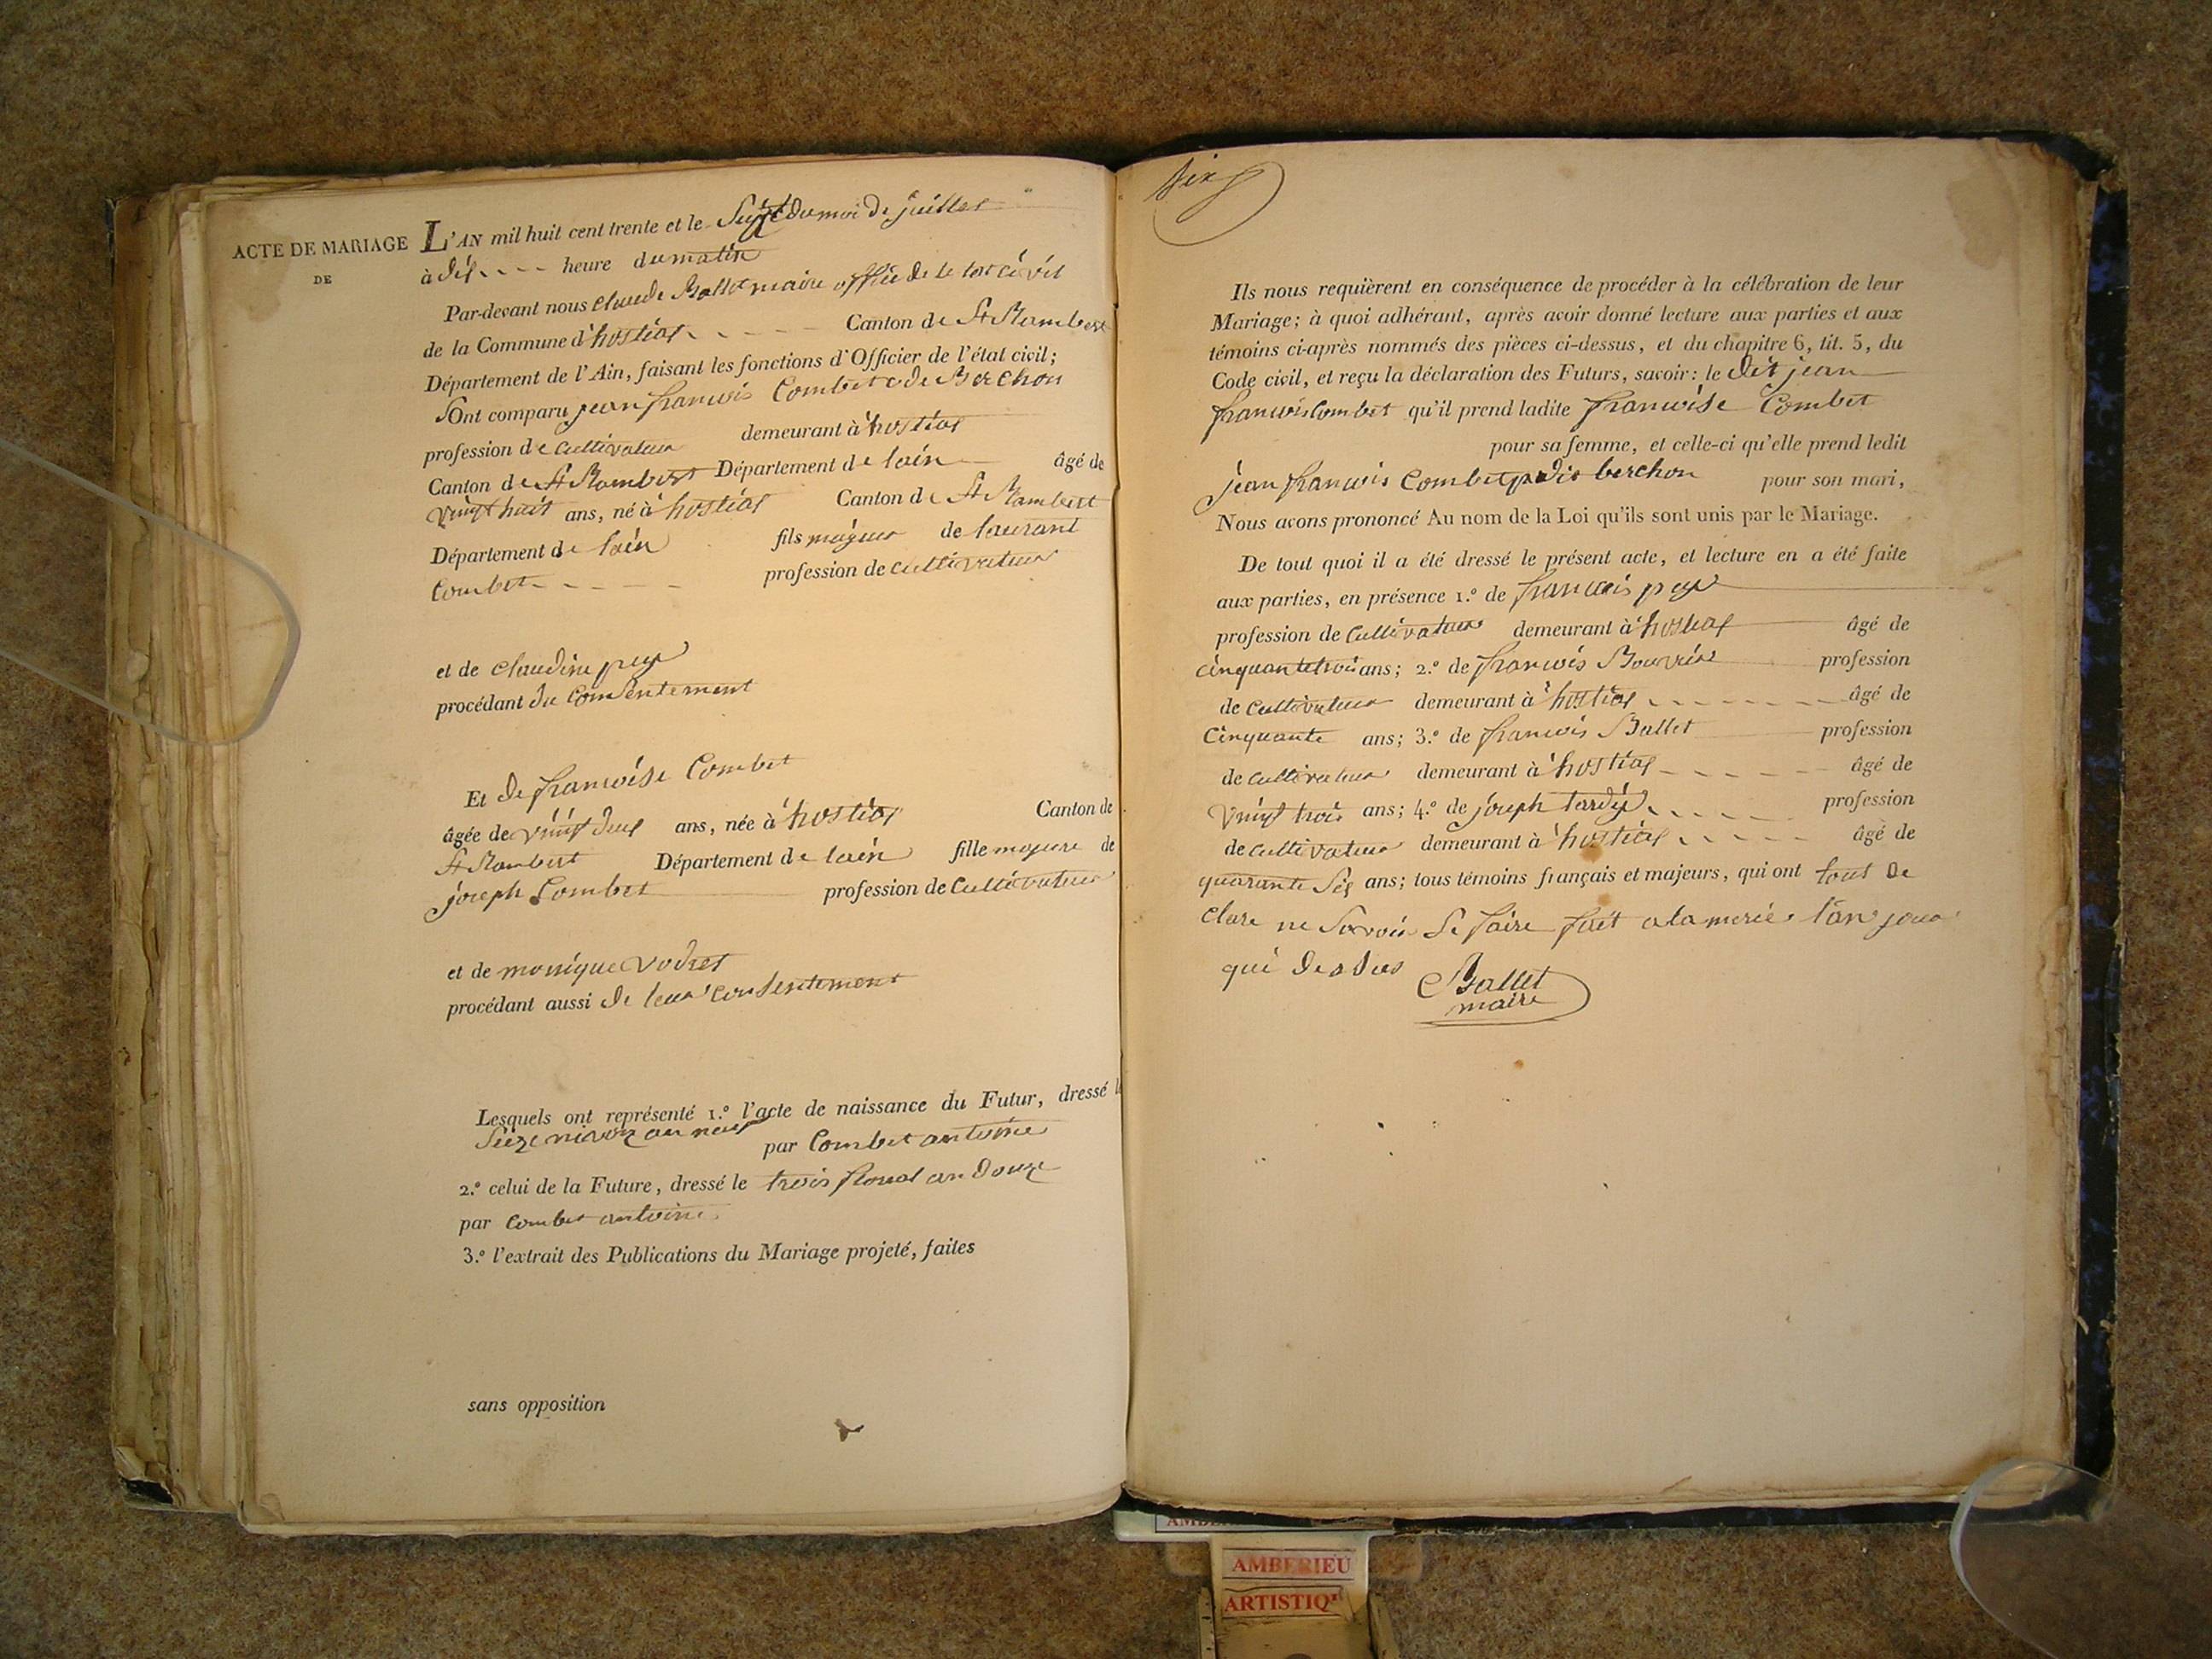 ACTE DE MARIAGE
DE
L'AN mil huit cent trente et le Seize du moi de juillet
à dis heure du matin
Par-devant nous claude Ballet maire
de la Commune d'hostias Canton de St Rambert
Département de l'Ain, faisant les fonctions d'Officier de l'état civil;
Ont comparu jean francois Combet de Berchon
profession de cultivateur demeurant à hostias
Canton de St Rambert Département de lain âgé de
vingt huit ans, né à hostias Canton de St Rambert
Département de lain fils majeur de laurant
Combet profession de cultivateur
et de claudine peys
procédant du consentement
Et de francoise Combet
âgée de vingt deus ans, née à hostias Canton de
St Rambert Département de lain fille majeure de
joseph Combet profession de cultivateur
et de monique vodret
procédant aussi de leur consentement
Lesquels ont représenté 1.º l'acte de naissance du Futur, dressé le
par Combet antoine
2.º celui de la Future, dressé le trois floreal an douze
par combet antoine
3.º l'extrait des Publications du Mariage projeté, faites
sans opposition
Ils nous requièrent en conséquence de procéder à la célébration de leur
Mariage; à quoi adhérant, après avoir donné lecture aux parties et aux
témoins ci-après nommés des pièces ci-dessus, et du chapitre 6, tit. 5, du
Code civil, et reçu la déclaration des Futurs, savoir: le dit jean
francois Combet qu'il prend ladite francoise Combet
pour sa femme, et celle-ci qu'elle prend ledit
jean francois Combet dit berchon pour son mari,
Nous avons prononcé Au nom de la Loi qu'ils sont unis par le Mariage.
De tout quoi il a été dressé le présent acte, et lecture en a été faite
aux parties, en présence 1.º de francois peys
profession de cultivateur demeurant à hostias âgé de
cinquante trois ans; 2.º de francois profession
de cultivateur demeurant à hostias âgé de
Cinquante ans; 3.º de francois Ballet profession
de cultivateur demeurant à hostias âgé de
vingt trois ans; 4.º de joseph tardy profession
de cultivateur demeurant à hostias âgé de
quarante sis ans; tous témoins français et majeurs, qui ont tout de
clare ne savoir le faire fait a la merie l'an jour
qui desus
Ballet
maire
AMBERIEU
ARTISTIQ